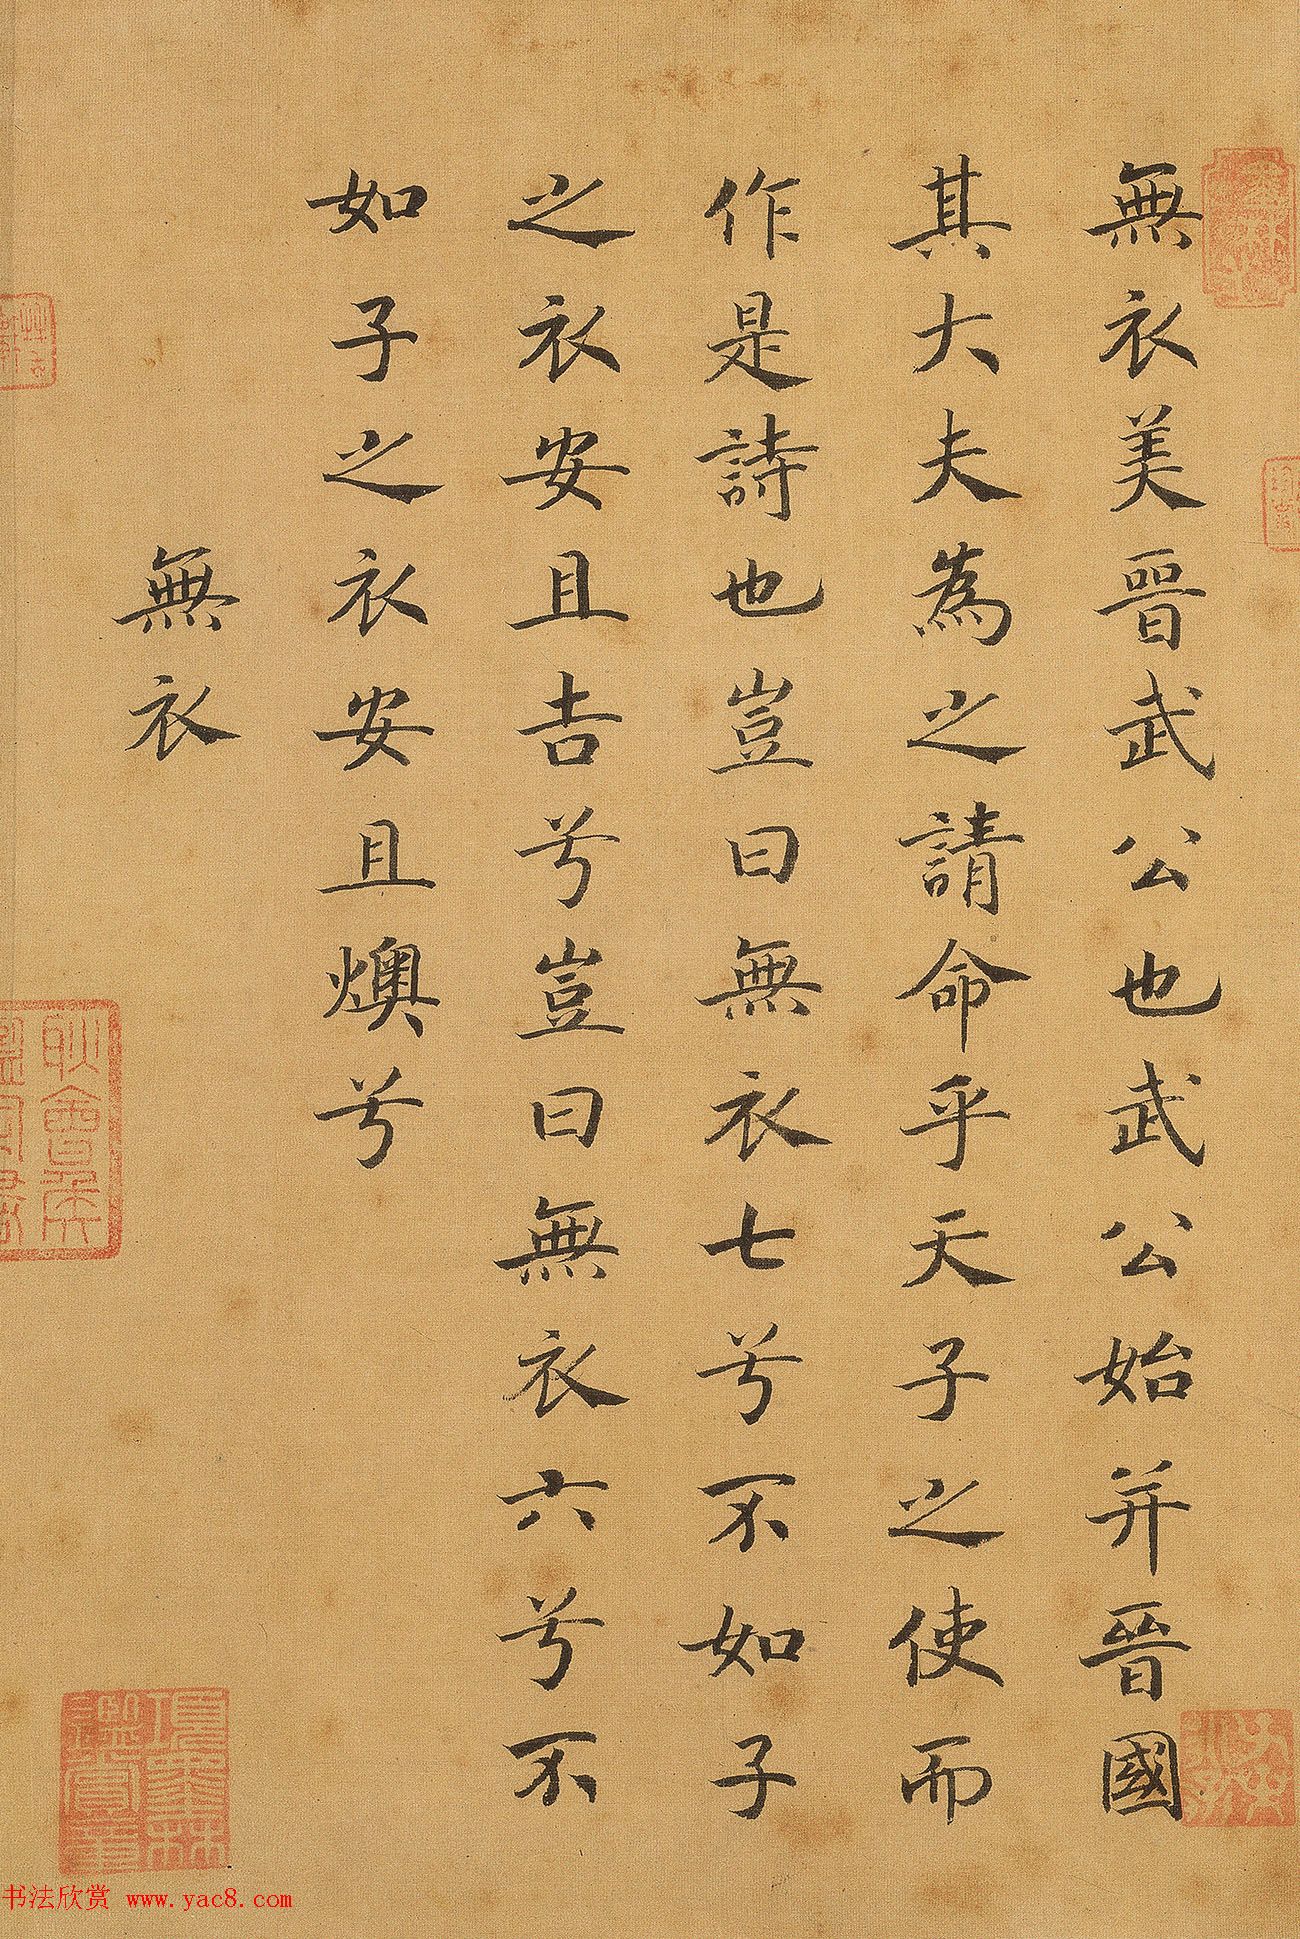 無衣美晉武公也武公始并晉國
其大夫為之請命乎天子之使而
作是詩也豈曰無衣七兮不如子
之衣安且吉兮豈曰無衣六兮不
如子之衣安且燠兮
無衣
書法欣赏 www.yac8.com